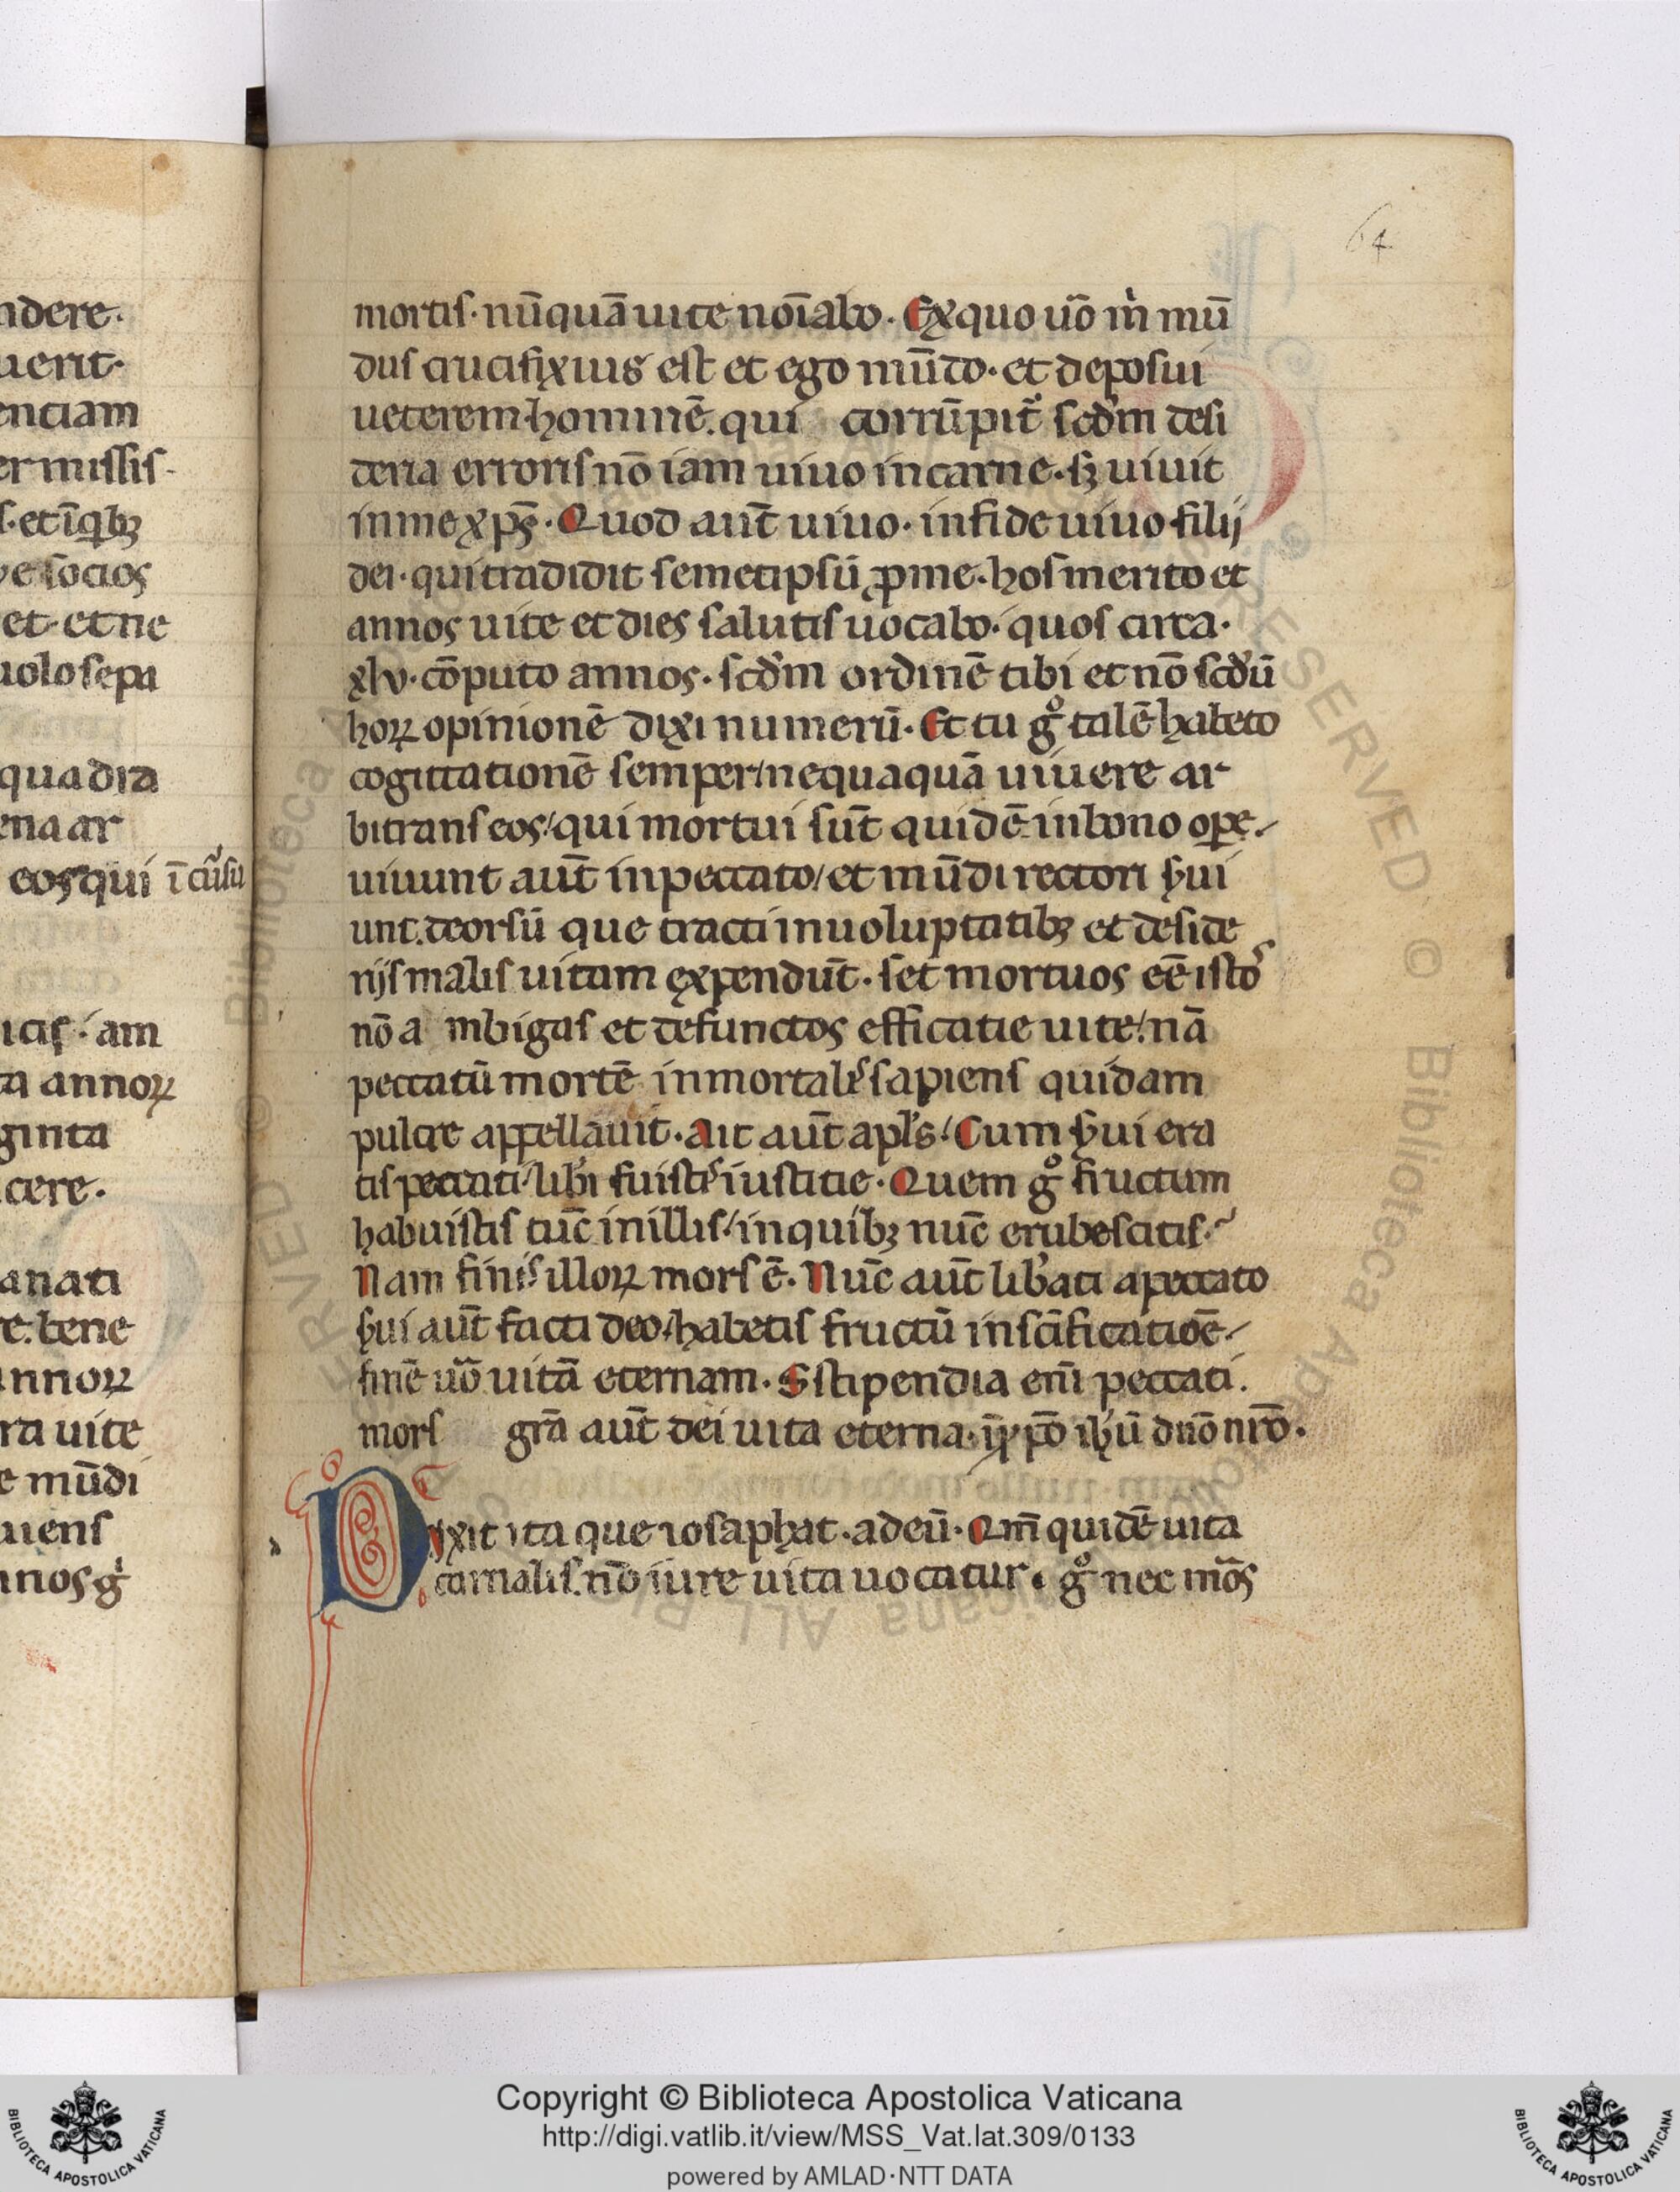 ndere.
uerit.
entiam
ermissis.
s. et ī qbꝫ
ve socios
et. et ne
uolo sepa
quadra
ena ar
eos qui ī cūsu
icis. iam
ta annoꝝ
ginta
cere.
anati
re. bene
annoꝝ
ra uite
e mūdi
uiens
nnos g̊
64
mortis. nūquā uite noīabo. Ex quo uo̅ m̍ mū
dus crucifixus est et ego mūdo. et deposui
ueterem hominē. qui corrūpit᷑ scd̅m desi
deria erroris nō iam uiuo in carne. sꝫ uiuit
in me xp̅s. Quod aut̅ uiuo. in fide uiuo filij
dei. qui tradidit semetipsū ꝓ me. hos merito et
annos uite et dies salutis uocabo. quos circa.
xlv. cōputo annos. scd̅m ordinē tibi et nō scd̅ū
hoꝝ opinionē dixi numerū. Et tu g̊ talē habeto
cogittationē semper/nequaquā uiuere ar
bitrans eos/qui mortui sūt quidē in bono oꝑe/
uiuunt aut̅ in peccato/et mūdi rectori ẜui
unt. deorsū que tracti in uoluptatibꝫ et deside
rijs malis uitam expendūt. set mortuos eē isto᷒
nō a mbigas et defunctos efficatie uite/nā
peccatū mortē inmortal᷒ sapiens quidam
pulcre appellauit. Ait aut̅ apl̅s/Cum ẜui era
tis peccati/lib̍i fuist᷒ iustitie. Quem g̊ fructum
habuistis tūc in illis/in quibꝫ nūc erubescitis.
Nam finis illoꝝ mors ē. Nūc aut̅ lib̍ati a peccato
ẜui aut̅ facti deo/habetis fructū in scīficatiōē/
finē uo̅ uitā eternam. Sstipendia eni̅ peccati.
mors gra̅ aut̅ dei uita eterna. ī xp̅o ih̅ū dn̅o nr̅o.
Dixit ita que iosaphat. ad eū. Qm̅ quidē uita
carnalis. nō iure uita uocatur. g̊ nec mo̅s
Copyright © Biblioteca Apostolica Vaticana
http://digi.vatlib.it/view/MSS_Vat.lat.309/0133
powered by AMLAD·NTT DATA
BIBLIOTECA APOSTOLICA VATICANA
BIBLIOTECA APOSTOLICA VATICANA